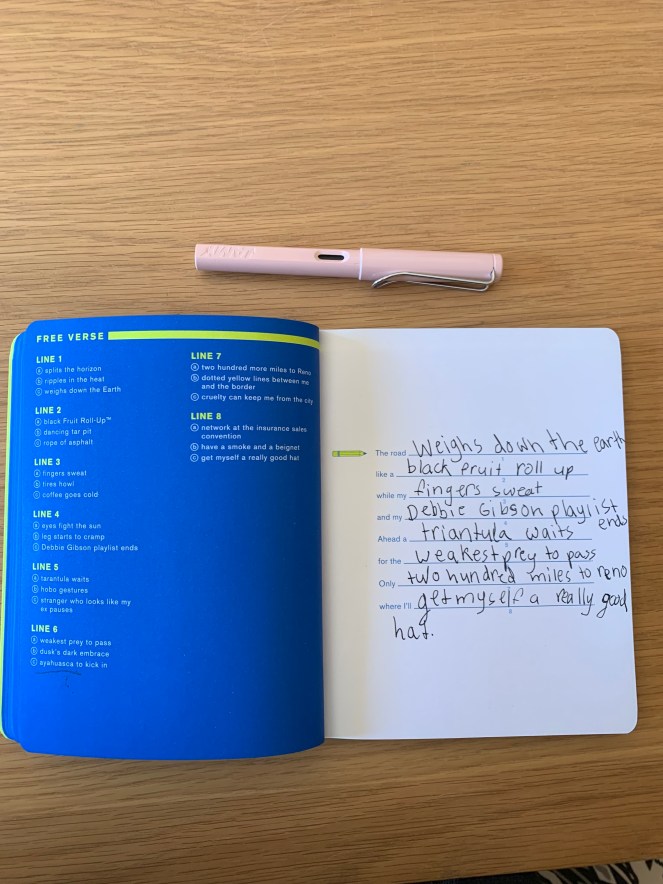 FREE VERSE
LINE 1
ⓐ splits the horizon
ⓑ ripples in the heat
ⓒ weighs down the Earth
LINE 2
ⓐ black Fruit Roll-Up™
ⓑ dancing tar pit
ⓒ rope of asphalt
LINE 3
ⓐ fingers sweat
ⓑ tires howl
ⓒ coffee goes cold
LINE 4
ⓐ eyes fight the sun
ⓑ leg starts to cramp
ⓒ Debbie Gibson playlist ends
LINE 5
ⓐ tarantula waits
ⓑ hobo gestures
ⓒ stranger who looks like my
ex pauses
LINE 6
ⓐ weakest prey to pass
ⓑ dusk's dark embrace
ⓒ ayahuasca to kick in
LINE 7
ⓐ two hundred more miles to Reno
ⓑ dotted yellow lines between me
and the border
ⓒ cruelty can keep me from the city
LINE 8
ⓐ network at the insurance sales
convention
ⓑ have a smoke and a beignet
ⓒ get myself a really good hat
The road Weighs down the earth
like a black fruit roll up
while my fingers sweat
and my Debbie Gibson playlist
ends
Ahead a triantula waits
for the weakest prey to pass
Only two hundred miles to reno
where I'll get myself a really good
8
hat.